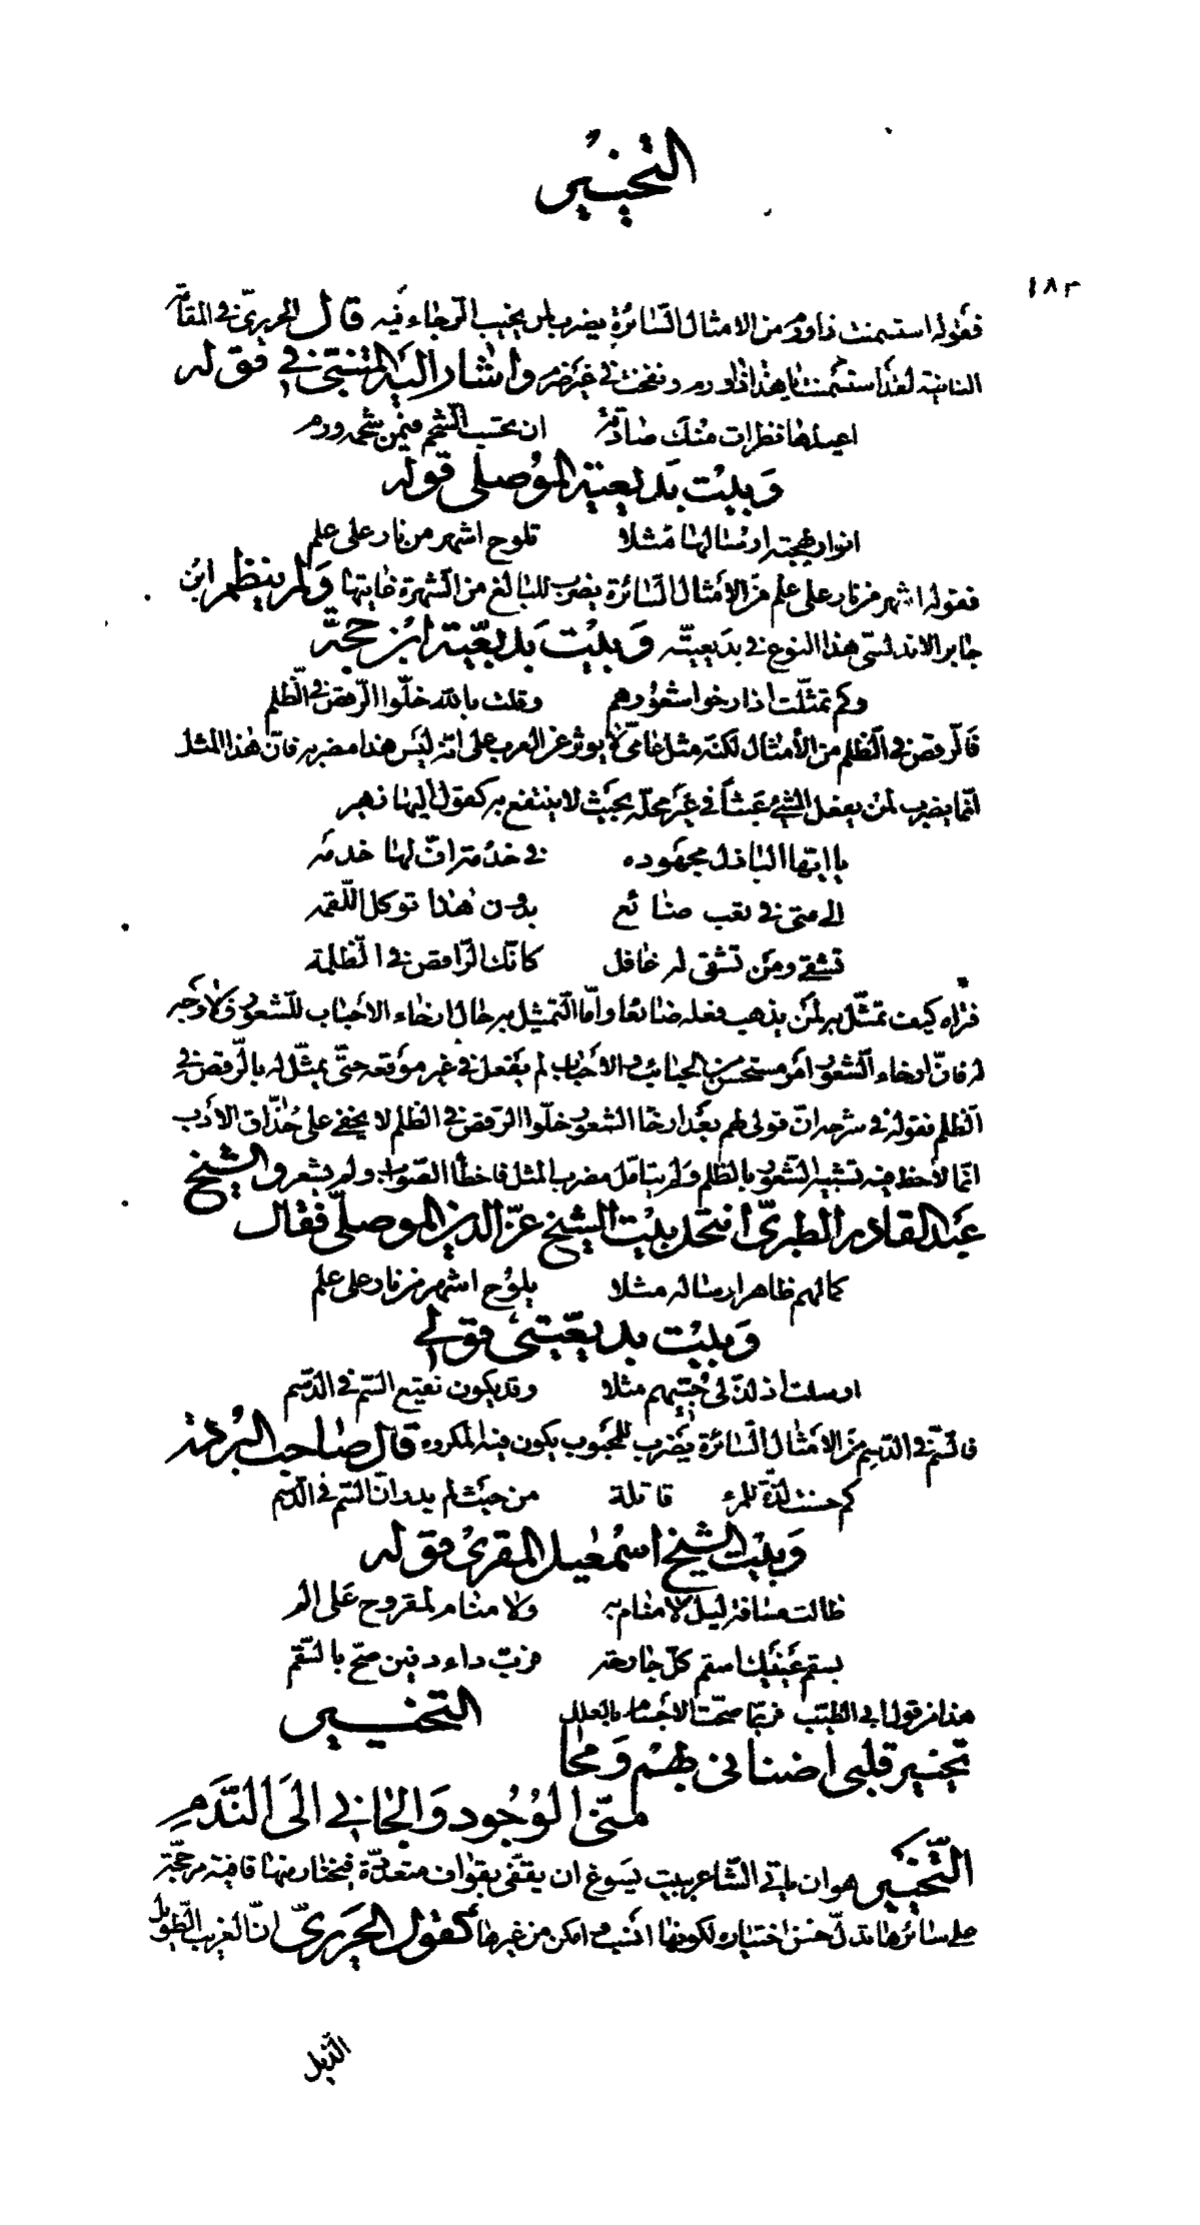 التخيير
١٨٣
فقوله استسمنت ذا ورم من الامثال السّائرة يضرب لمن يخيب الرجاء فيه قال الحريرىّ فى المقامة
الثانية لقد استسمنت يا هذا ذا ورم ونفخت فى غير ضرم واشار اليه المتنبّى فى قوله
اعيذها نظرات منك صادقة ان تحسب الشّحم فيمن شحمه ورم
وبيت بديعيته الموصلى قوله
انوار بهجته ارسالها مثلا تلوح اشهر من نار على علم
فقوله اشهر من نار على علم من الأمثال السّائرة يضرب للبالغ من الشهرة غايتها ولم ينظم ابن
جابر الاندلسىّ هذا النوع فى بديعيّته وبيت بديعيّة ابن حجّة
وكم تمثّلت اذا رخوا شعورهم وقلت بالله خلّوا الرّقص فى الظّلم
فالرّقص فى الظلم من الأمثال لكنّه مثل عامىّ لم يوثر عن العرب على انّه ليس هذا مضربه فانّ هذا المثل
انّما يضرب لمن يفعل الشّئ عبثاً فى غير محلّه بحيث لا ينتفع به كقول البهاء زهير
يا ايّها الباذل مجهوده فى خدمة افّ لها خدمه
الى متى فى تعب ضائع بدون هذا توكل اللّقمه
تشقى ومن تشقى له غافل كانّك الرّاقص فى الظلمة
فتراه كيف تمثّل به لمن يذهب فعله ضائعا وأمّا التّمثيل به حال ارخاء الأحباب للشعور فلا وجه
له فانّ ارخاء الشعور امر مستحسن من الحبائب والأحباب لم يفعل فى غير موقعه حتّى يمثّل له بالرّقص فى
الظلم فقوله فى شرحه انّ قولى لهم بعد ارخا الشعور خلّوا الرّقص فى الظلم لا يخفى على حذّاق الأدب
انّما لاحظ فيه تشبيه الشّعور بالظلم ولم يتامّل مضرب المثل فاخطأ الصّواب ولم يشعر والشيخ
عبد القادر الطبرىّ انتحل بيت الشيخ عزّ الدين الموصلىّ فقال
كمالهم ظاهر ارساله مثلا يلوح اشهر من نار على علم
وبيت بديعيّتى قولى
ارسلت اذ لذّ لى حبّيهم مثلا وقد يكون نقيع السّم فى الدّسم
فالسّم فى الدّسم من الأمثال السّائرة يضرب للمحبوب يكون فيه المكروه قال صاحب البردة
كم حسنت لذّة للمرء قاتلة من حيث لم يدر انّ السّم فى الدّسم
وبيت الشيخ اسمعيل المقرى قوله
طالت مسافة ليل لا منام به ولا منام لمقروح على الم
بسقم عينيك اسقم كلّ جارحة فربّ داء دفين صحّ بالسّقم
هذا من قول ابى الطيّب فربّما صحّت الأجسام بالعلل التخيير
تخيير قلبى اضنا نى بهم ومحا
منّى الوجود والجانى الى النّدم
التّخيير هو ان ياتى الشّاعر ببيت يسوغ ان يقفّى بقواف متعدّدة فيختار منها قافية مرجّحة
على سائرها تدلّ حسن اختياره لكونها انسب وامكن من غيرها كقول الحريرىّ انّ الغريب الطويل
الذيل